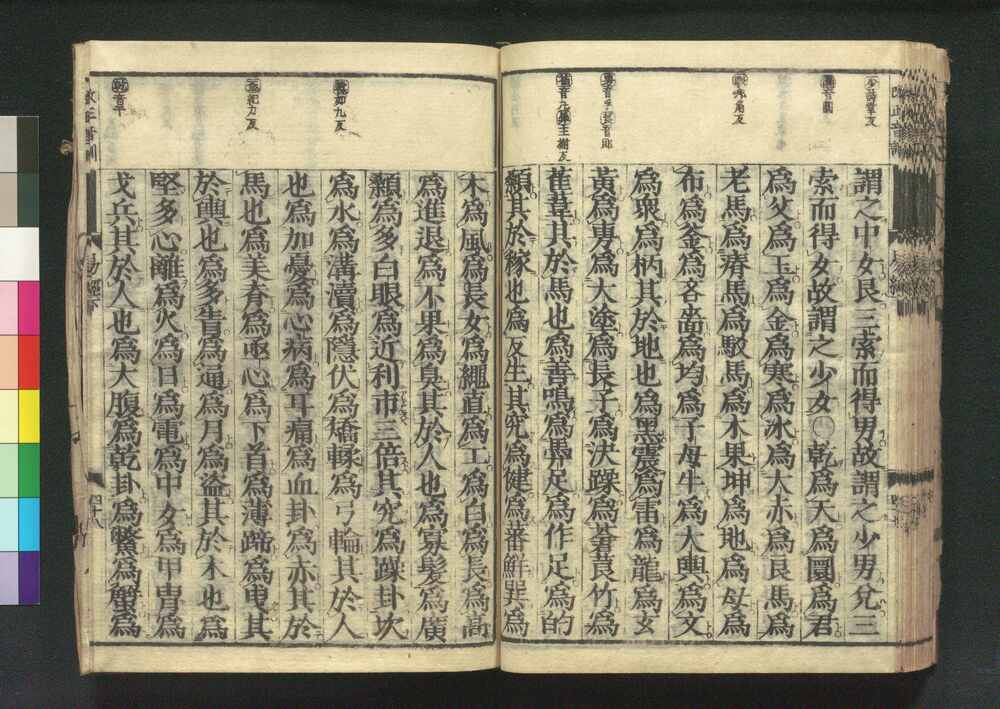 少詩章反
圜音圓
角反
旉音孚筤音郎
音九馵主樹反
謂之中女艮三索而得男故謂之少男兌三
索而得女故謂之少女○乾爲天爲圜爲君
爲父爲玉爲金爲寒爲冰爲大赤爲良馬爲
老馬爲瘠馬爲駁馬爲木果坤爲地爲母爲
布爲釜爲吝嗇爲均爲子母牛爲大輿爲文
爲衆爲柄其於地也爲黑震爲雷爲龍爲玄
黃爲旉爲大塗爲長子爲決躁爲蒼筤竹爲
萑葦其於馬也爲善鳴爲馵足爲作足爲的
顙其於稼也爲反生其究爲健爲蕃鮮巽爲
輮如九反
亟紀力反
乾音干
木爲風爲長女爲繩直爲工爲白爲長爲高
爲進退爲不果爲臭其於人也爲寡髮爲廣
顙爲多白眼爲近利市三倍其究爲躁卦坎
爲水爲溝瀆爲隱伏爲矯輮爲弓輪其於人
也爲加憂爲心病爲耳痛爲血卦爲赤其於
馬也爲美脊爲亟心爲下首爲薄蹄爲曳其
於輿也爲多眚爲通爲月爲盜其於木也爲
堅多心離爲火爲日爲電爲中女爲甲冑爲
戈兵其於人也爲大腹爲乾卦爲鱉爲蟹爲
易經下
四十八